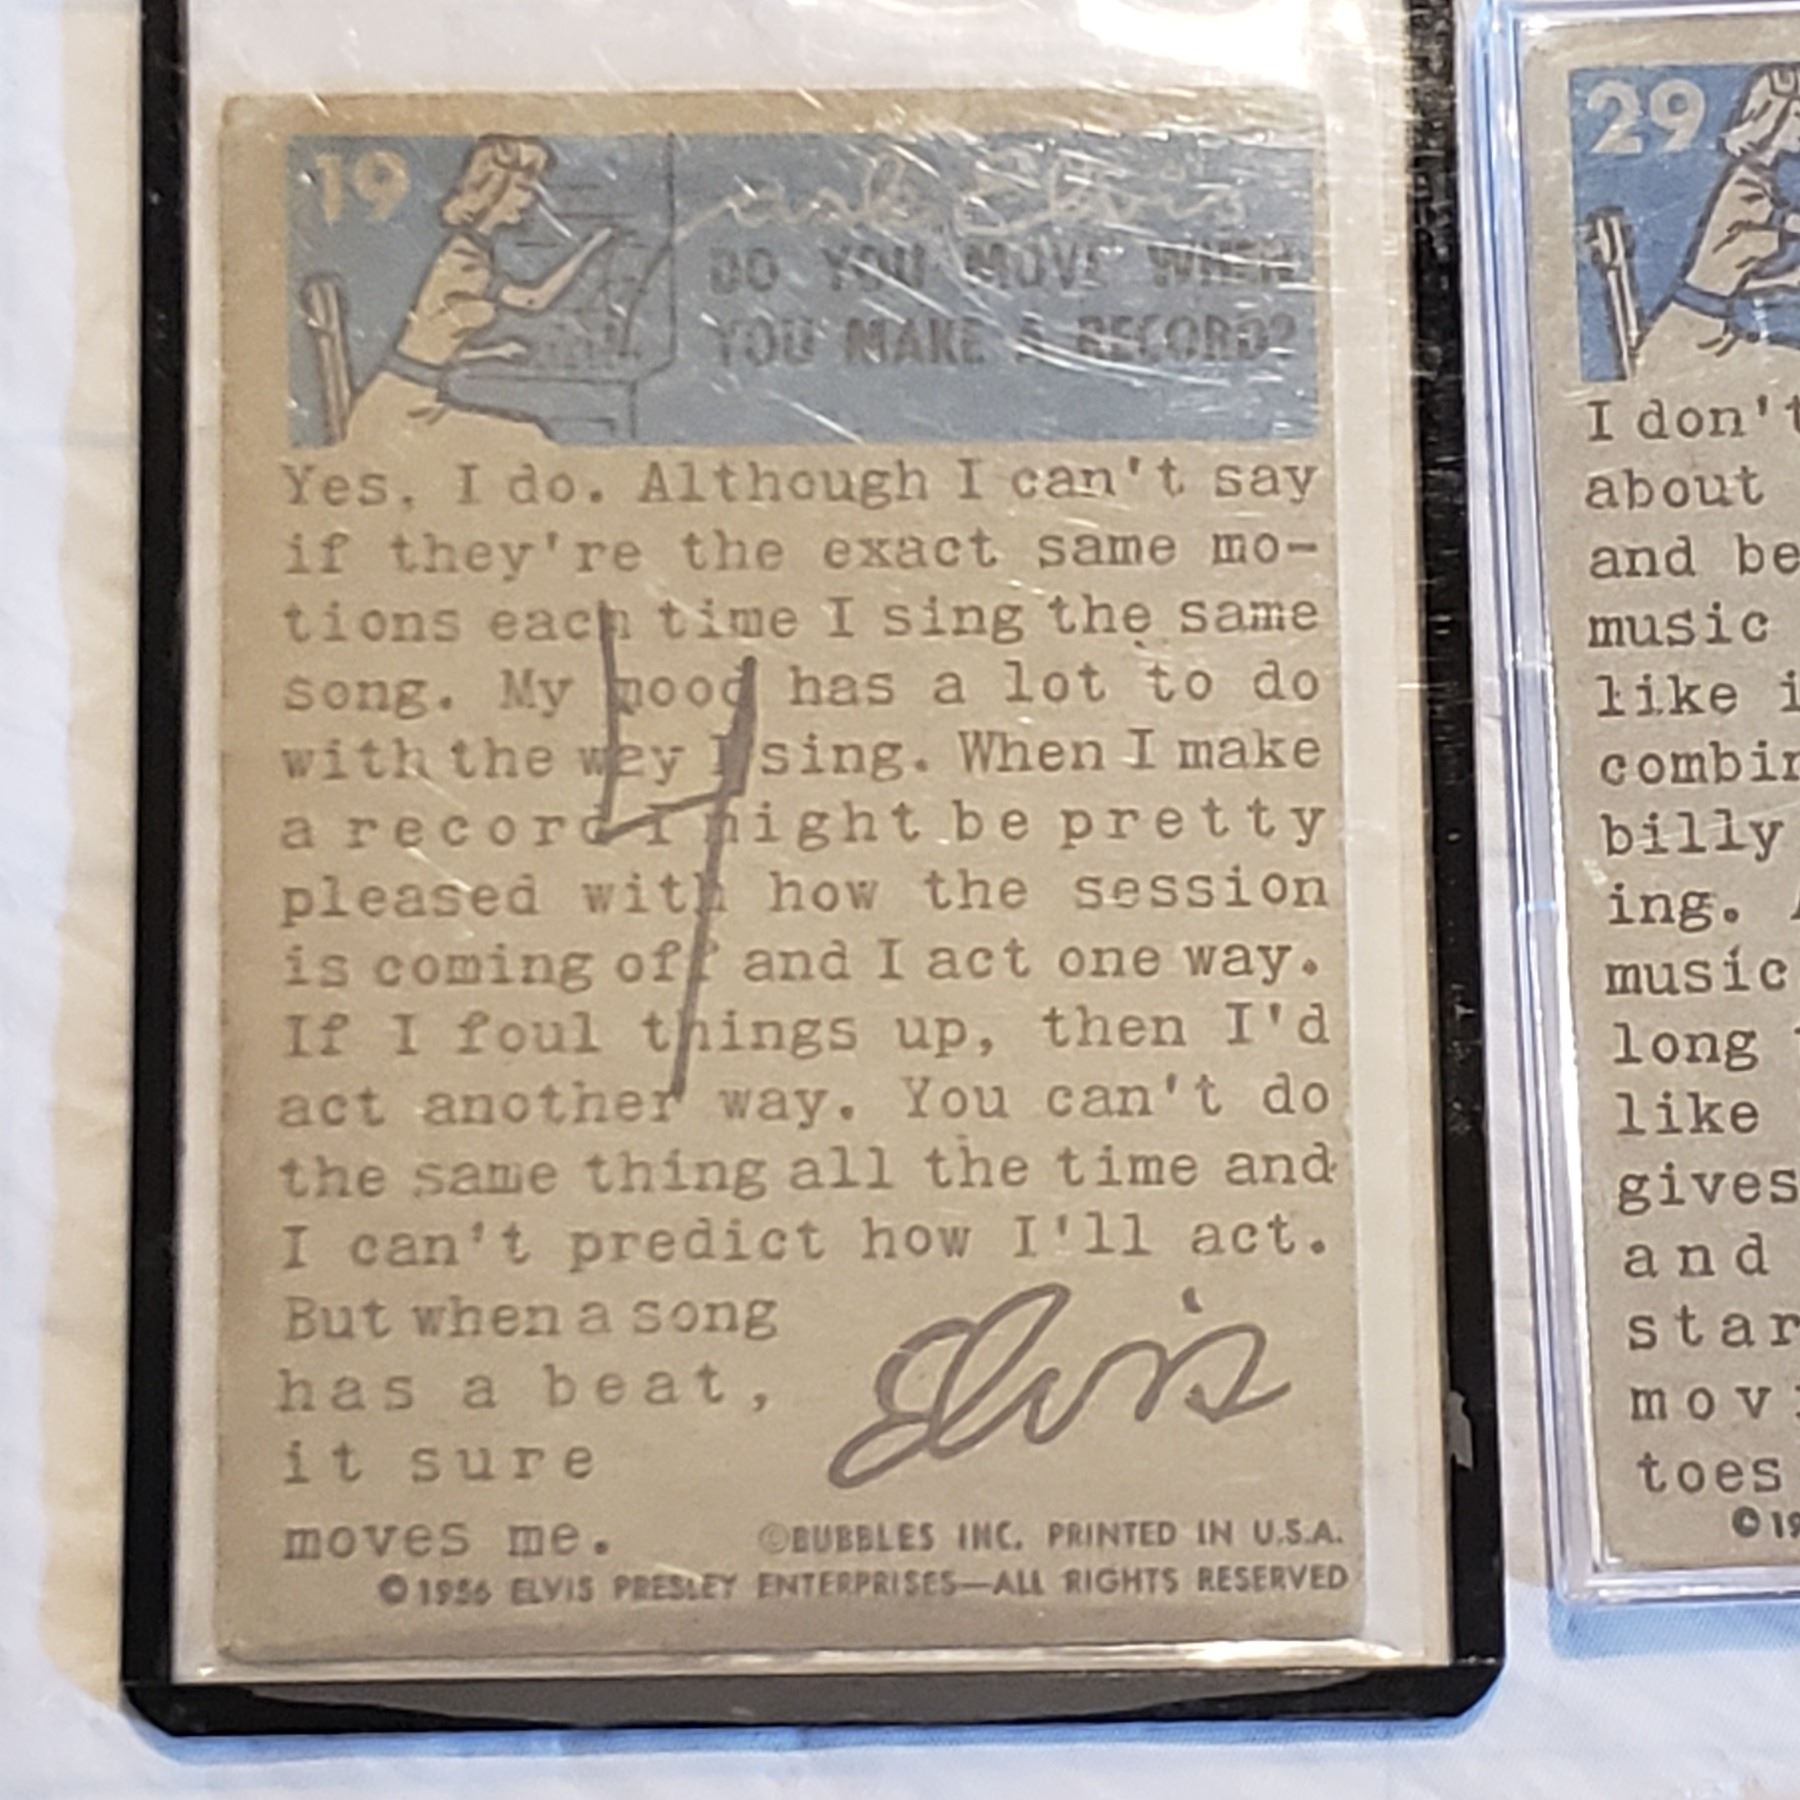 19
ask Elvis
DO YOU MOVE WHEN
YOU MAKE A RECORD?
Yes, I do. Although I can't say
if they're the exact same mo-
tions each time I sing the same
song. My mood has a lot to do
with the way I sing. When I make
a record I might be pretty
pleased with how the session
is coming off and I act one way.
If I foul things up, then I'd
act another way. You can't do
the same thing all the time and
I can't predict how I'll act.
But when a song
has a beat,
it sure
moves me.
Elvis
©BUBBLES INC. PRINTED IN U.S.A.
© 1956 ELVIS PRESLEY ENTERPRISES—ALL RIGHTS RESERVED
4
29
I don't
about
and be
music
like i
combin
billy
ing.
music
long
like
gives
and
star
mov
toes
© 19